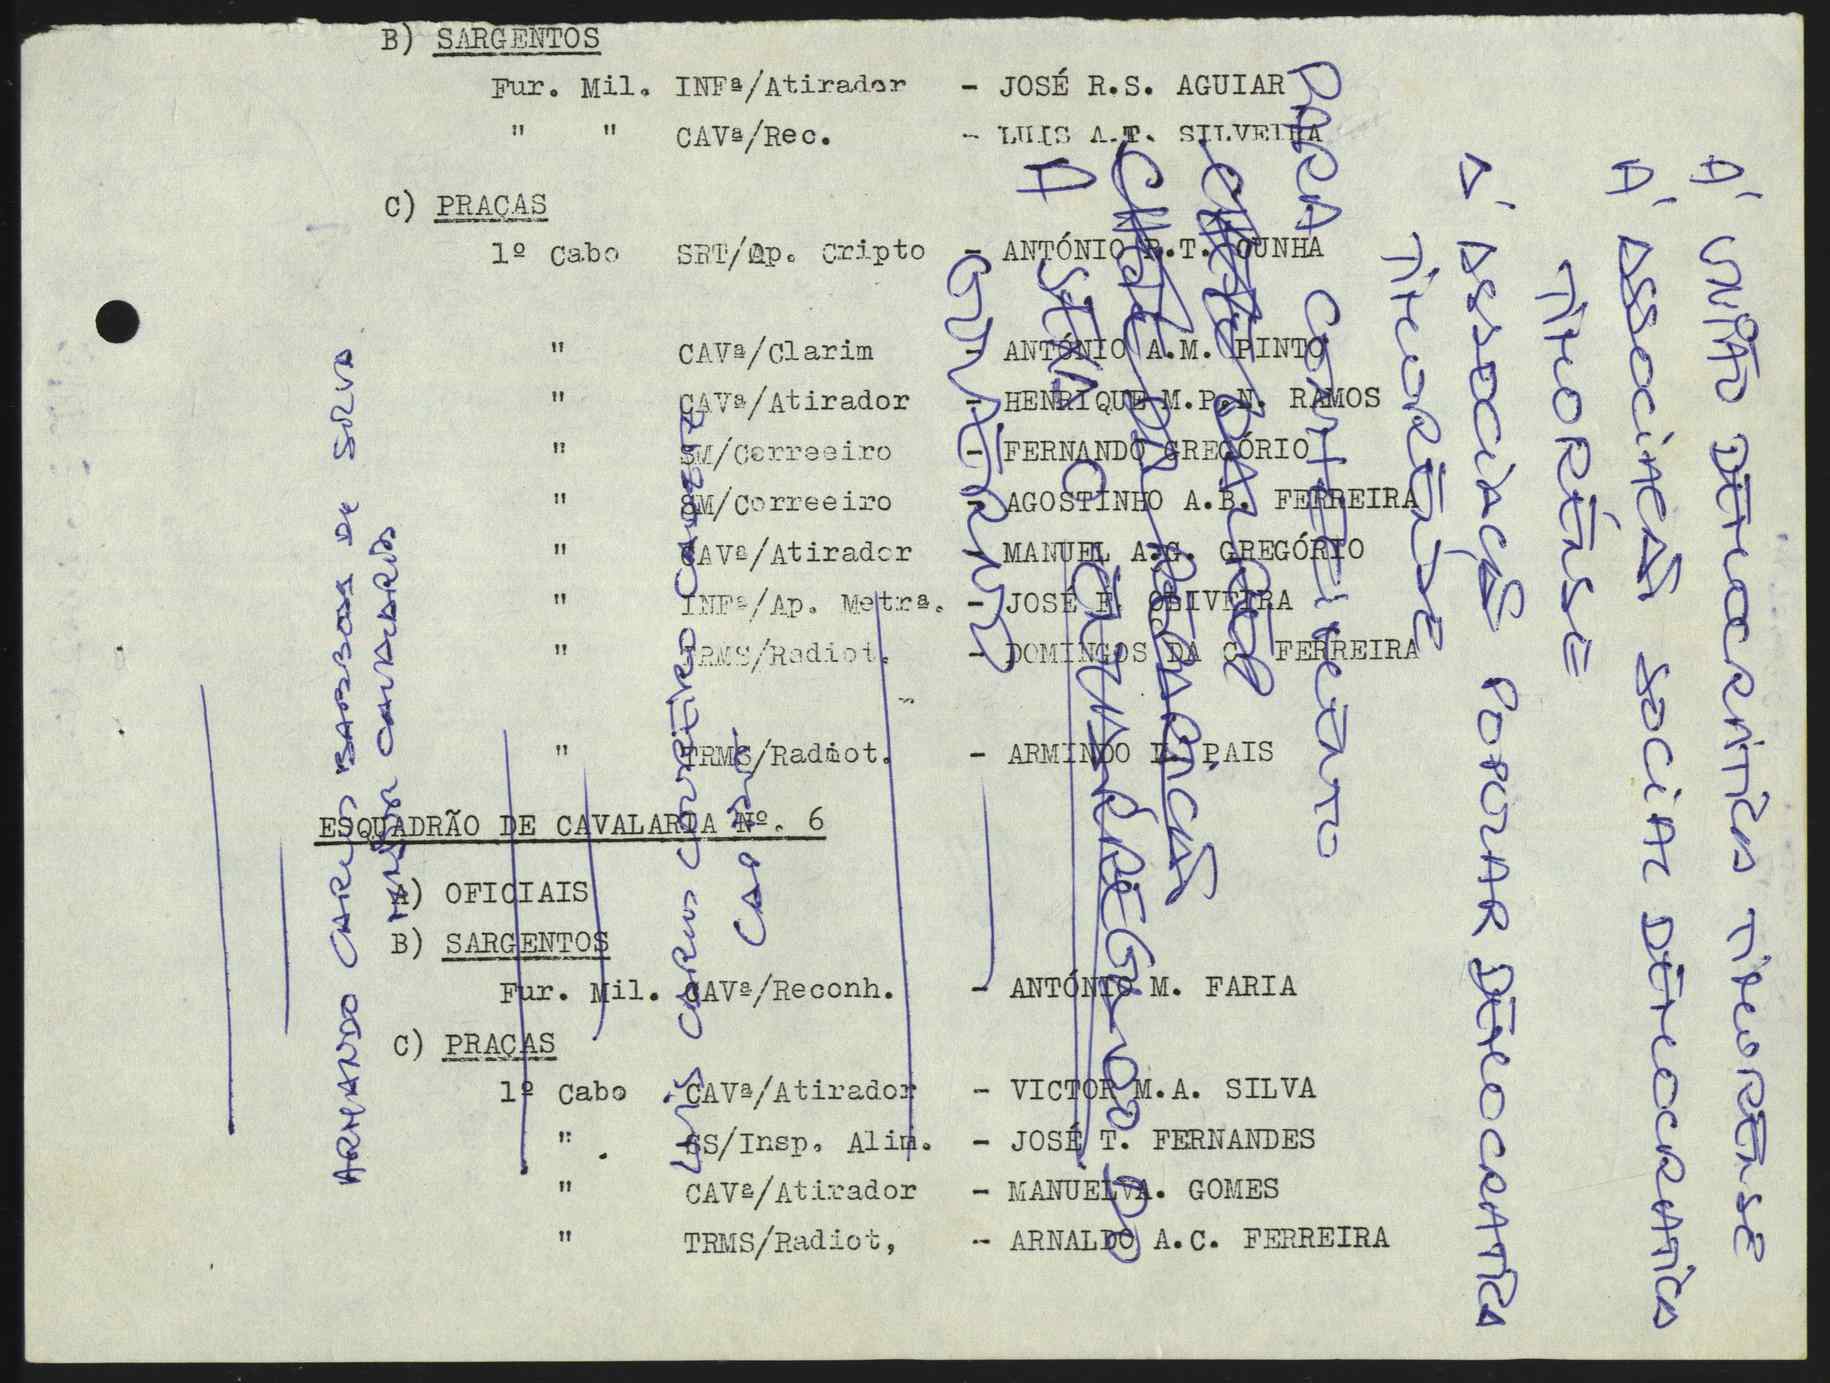 B) SARGENTOS
Fur. Mil. INFª/Atirador - JOSÉ R.S. AGUIAR
" " CAVª/Rec. - LUIS A.T. SILVEIRA
C) PRAÇAS
1º Cabo SRT/Op. Cripto - ANTÓNIO R.T. CUNHA
" CAVª/Clarim - ANTÓNIO A.M. PINTO
" CAVª/Atirador - HENRIQUE M.P.N. RAMOS
" SM/Correeiro - FERNANDO GREGÓRIO
" SM/Correeiro - AGOSTINHO A.B. FERREIRA
" CAVª/Atirador - MANUEL A.G. GREGÓRIO
" INFª/Ap. Metra. - JOSÉ F. OLIVEIRA
" TRMS/Radiot. - DOMINGOS DA C. FERREIRA
" TRMS/Radiot. - ARMINDO PAIS
ESQUADRÃO DE CAVALARIA Nº. 6
A) OFICIAIS
B) SARGENTOS
Fur. Mil. CAVª/Reconh. - ANTÓNIO M. FARIA
C) PRAÇAS
1º Cabo CAVª/Atirador - VICTOR M.A. SILVA
" SS/Insp. Alim. - JOSÉ T. FERNANDES
" CAVª/Atirador - MANUEL A. GOMES
" TRMS/Radiot, - ARNALDO A.C. FERREIRA
À UNIÃO DEMOCRÁTICA TIMORENSE
À ASSOCIAÇÃO SOCIAL DEMOCRATICA
TIMORENSE
À ASSOCIAÇÃO POPULAR DEMOCRATICA
TIMORENSE
PARA CONHECIMENTO
A SEXA O ENCARREGADO DO
GOVERNO
LUIS CARLOS
ARMANDO CARLOS BARBOSA DE